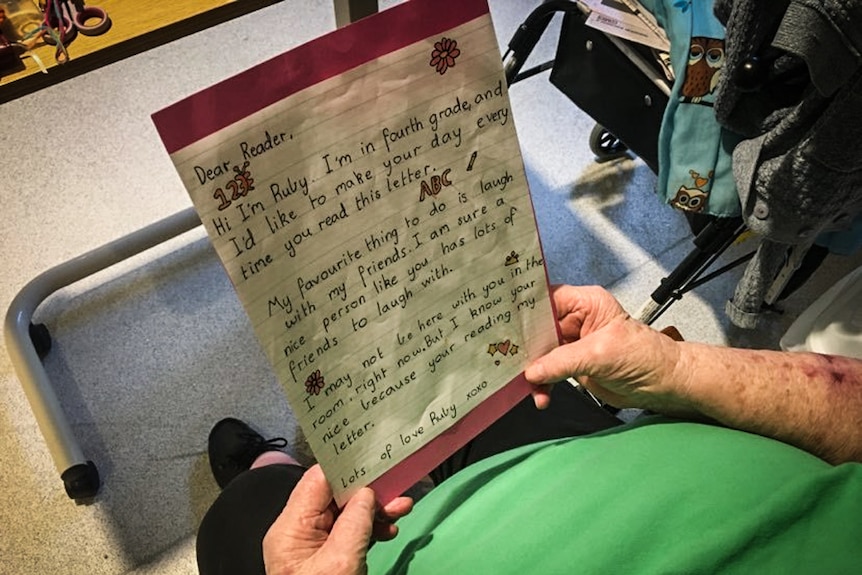 Dear Reader,
123
Hi I'm Ruby. I'm in fourth grade, and
I'd like to make your day every
time you read this letter.
ABC
My favourite thing to do is laugh
with my friends. I am sure a
nice person like you has lots of
friends to laugh with.
I may not be here with you in the
room, right now. But I know your
nice because your reading my
letter.
Lots of love Ruby xoxo